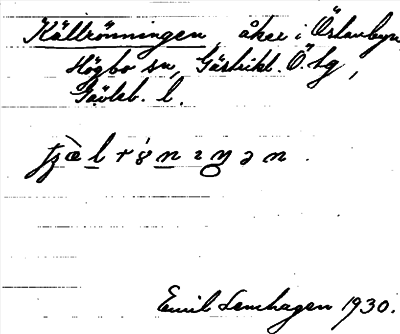 Källrönningen, åker i Östanbyn,
Högbo sn, Gästrikl. Ö. tg,
Gävleb. l.
Emil Lenhagen 1930.